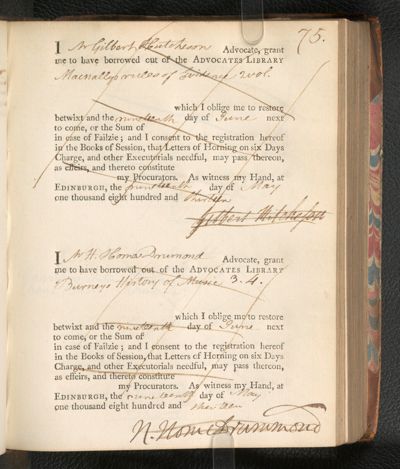 75.
I Mr Gilbert Hutcheson Advocate, grant
me to have borrowed out of the ADVOCATES LIBRARY
Macnally's rules of Evidence 2 vol.
which I oblige me to restore
betwixt and the nineteenth day of June next
to come, or the Sum of
in case of Failzie; and I consent to the registration hereof
in the Books of Session, that Letters of Horning on six Days
Charge, and other Executorials needful, may pass thereon,
as effeirs, and thereto constitute
my Procurators. As witness my Hand, at
EDINBURGH, the nineteenth day of May
one thousand eight hundred and thirteen
Gilbert Hutcheson
I Mr H. Home Drummond Advocate, grant
me to have borrowed out of the ADVOCATES LIBRARY
Burneys History of Music 3. 4.
which I oblige me to restore
betwixt and the nineteenth day of June next
to come, or the Sum of
in case of Failzie; and I consent to the registration hereof
in the Books of Session, that Letters of Horning on six Days
Charge, and other Executorials needful, may pass thereon,
as effeirs, and thereto constitute
my Procurators. As witness my Hand, at
EDINBURGH, the nineteenth day of May
one thousand eight hundred and thirteen
H. Home Drummond